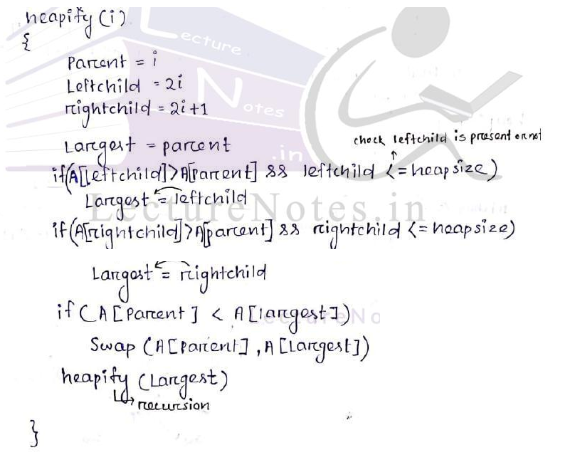 heapify (i)
{
Parent = i
Leftchild = 2i
rightchild = 2i+1
Largest = parent
check leftchild is present or not
if(A[leftchild]>A[parent] && leftchild <= heapsize)
Largest = leftchild
if(A[rightchild]>A[parent] && rightchild <= heapsize)
Largest = rightchild
if (A[Parent] < A[largest])
Swap (A[Parent], A[Largest])
heapify (Largest)
↳ recursion
}
Lecture
Notes
.in
LectureNotes.in